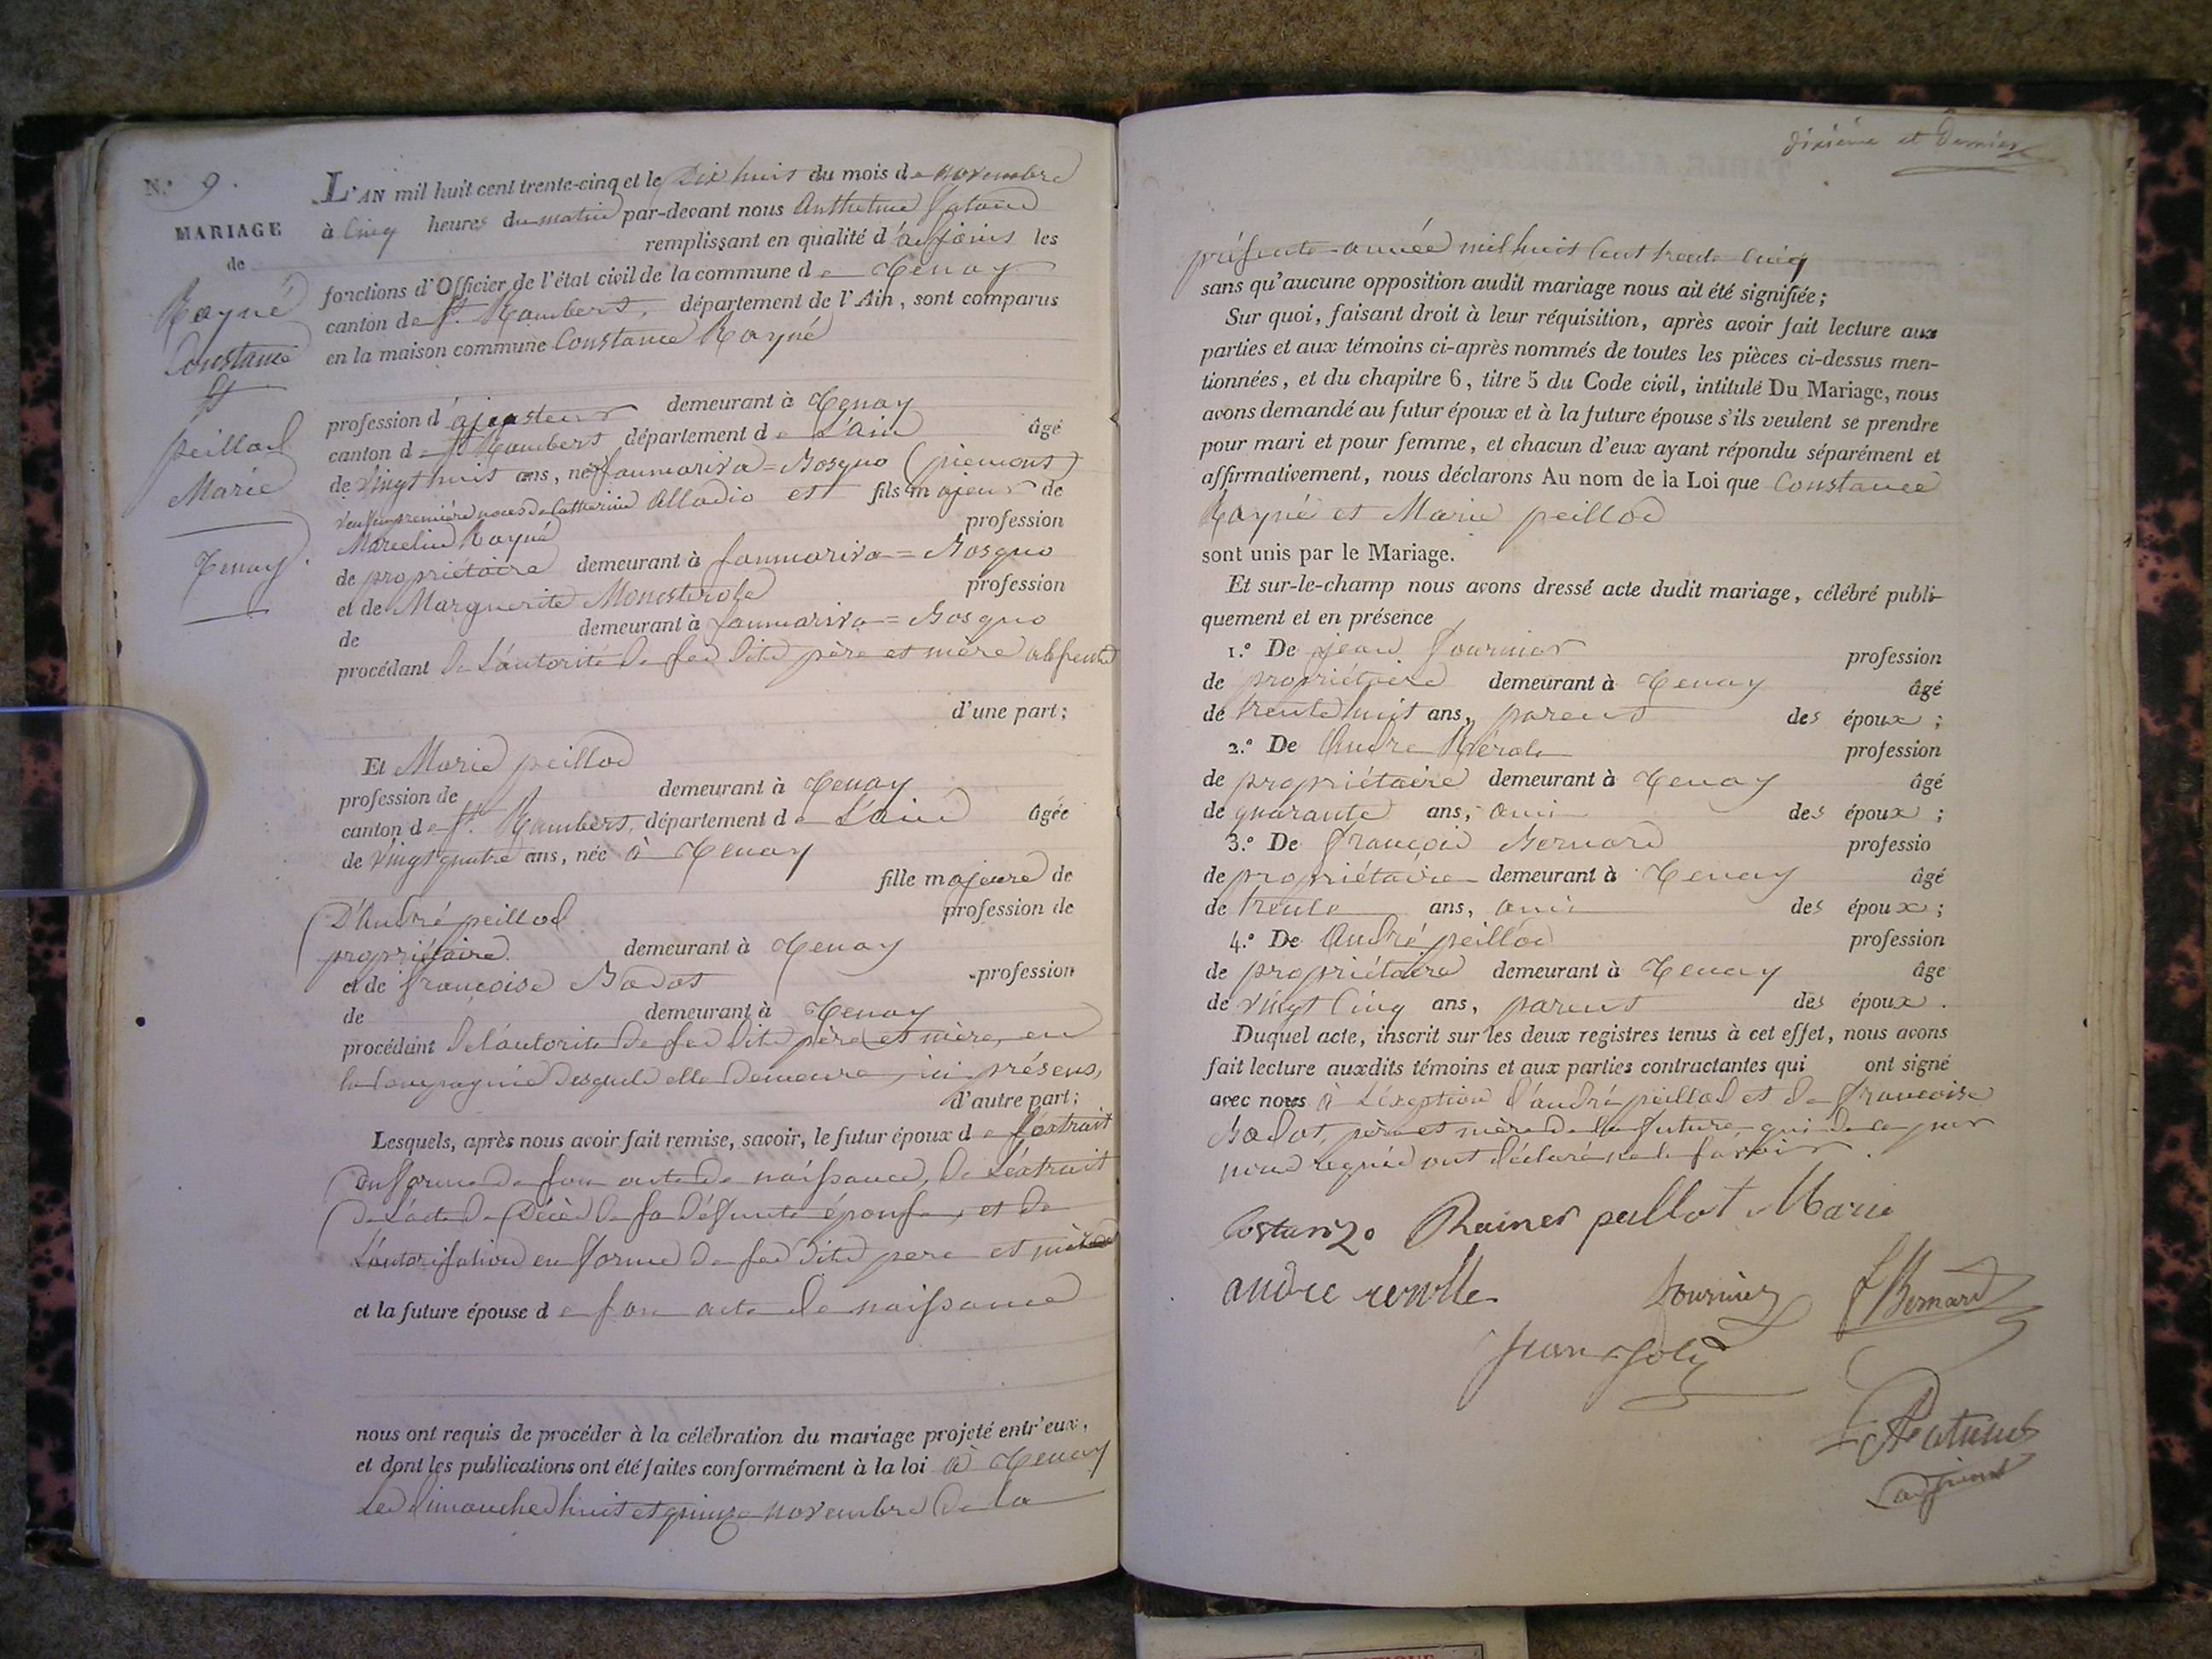 N.° 9.
MARIAGE
de
Rayné
Constance
Et
peillod
Marie
Tenay.
L'AN mil huit cent trente-cinq et le Dix huit du mois de novembre
à Cinq heures du matin par-devant nous Anthelme
remplissant en qualité d'adjoint les
fonctions d'Officier de l'état civil de la commune de Tenay
canton de St. Rambert, département de l'Ain, sont comparus
en la maison commune Constance Rayné
profession d'ajusteur demeurant à Tenay
canton de St Rambert département de L'ain âgé
de Vingt huit ans, né à Sommariva=Bosquo (piemont)
veuf en première noces de Catherine Alladio et fils majeur de
Marcelin Rayné profession
de propriétaire demeurant à Sommariva=Bosquo
et de Marguerite Monesterole profession
de demeurant à Sommariva=Bosquo
procédant de L'autorité de ses dits père et mère absents
d'une part;
Et Marie peillod
profession de demeurant à Tenay
canton de St. Rambert, département de L'ain âgée
de Vingt quatre ans, née à Tenay
fille majeure de
D'André peillod profession de
propriétaire demeurant à Tenay
et de françoise Bodot profession
de demeurant à Tenay
procédant de l'autorité de ses dits père et mère, en
la Compagnie desquels elle demeure, ici présens,
d'autre part;
Lesquels, après nous avoir fait remise, savoir, le futur époux de L'extrait
en forme de son acte de naissance, de L'extrait
de L'acte de Décès de sa défunte épouse, et de
L'autorisation en forme de ses dits pere et mère
et la future épouse de son acte de naissance
nous ont requis de procéder à la célébration du mariage projeté entr'eux,
et dont les publications ont été faites conformément à la loi à Tenay
Les dimanches huit et quinze novembre de la
dixième et Dernier
présente année mil huit Cent trente Cinq
sans qu'aucune opposition audit mariage nous ait été signifiée;
Sur quoi, faisant droit à leur réquisition, après avoir fait lecture aux
parties et aux témoins ci-après nommés de toutes les pièces ci-dessus men-
tionnées, et du chapitre 6, titre 5 du Code civil, intitulé Du Mariage, nous
avons demandé au futur époux et à la future épouse s'ils veulent se prendre
pour mari et pour femme, et chacun d'eux ayant répondu séparément et
affirmativement, nous déclarons Au nom de la Loi que Constance
Rayné et Marie peillod
sont unis par le Mariage.
Et sur-le-champ nous avons dressé acte dudit mariage, célébré publi-
quement et en présence
1.° De jean fournier profession
de propriétaire demeurant à Tenay âgé
de trente huit ans, parent des époux;
2.° De André Rérole profession
de propriétaire demeurant à Tenay âgé
de quarante ans, ami des époux;
3.° De françois Bernard professio
de propriétaire demeurant à Tenay âgé
de trente ans, ami des époux;
4.° De André peillod profession
de propriétaire demeurant à Tenay âgé
de vingt Cinq ans, parent des époux.
Duquel acte, inscrit sur les deux registres tenus à cet effet, nous avons
fait lecture auxdits témoins et aux parties contractantes qui ont signé
avec nous à L'exeption d'andré peillod et de françoise
Bodot, père et mère de la future, qui de ce par
nous requis ont déclaré ne le savoir.
Costanzo Rainer peillot Marie
andre rerolle fournier f Bernard
jean joly
adjoint